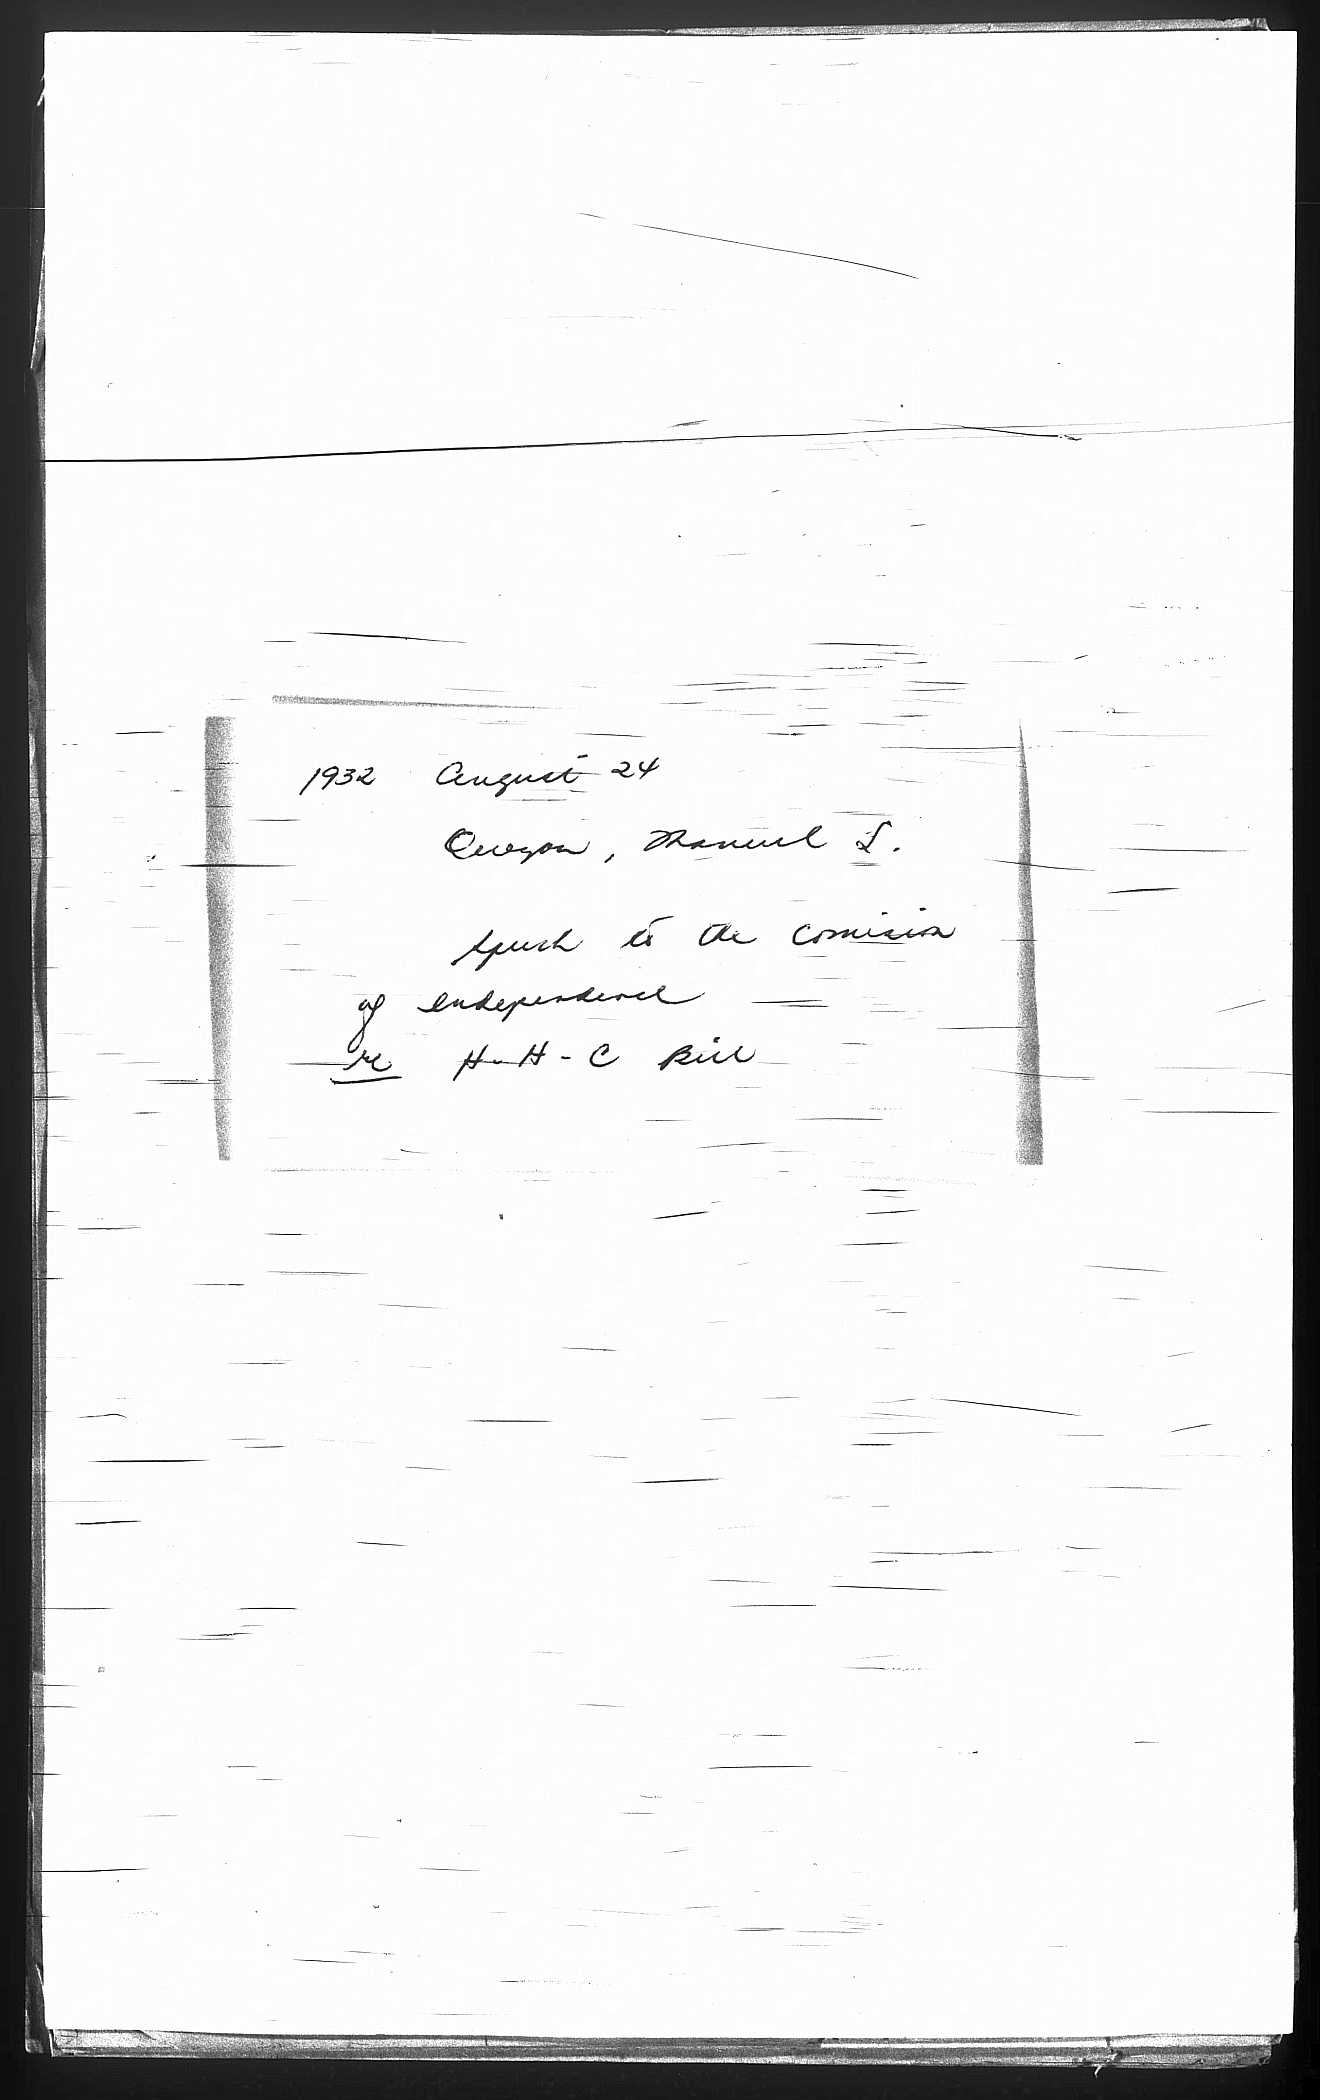 1932 August 24
Quezon, Manuel L.
Speech to the Comision
of Independence
re H-H-C Bill